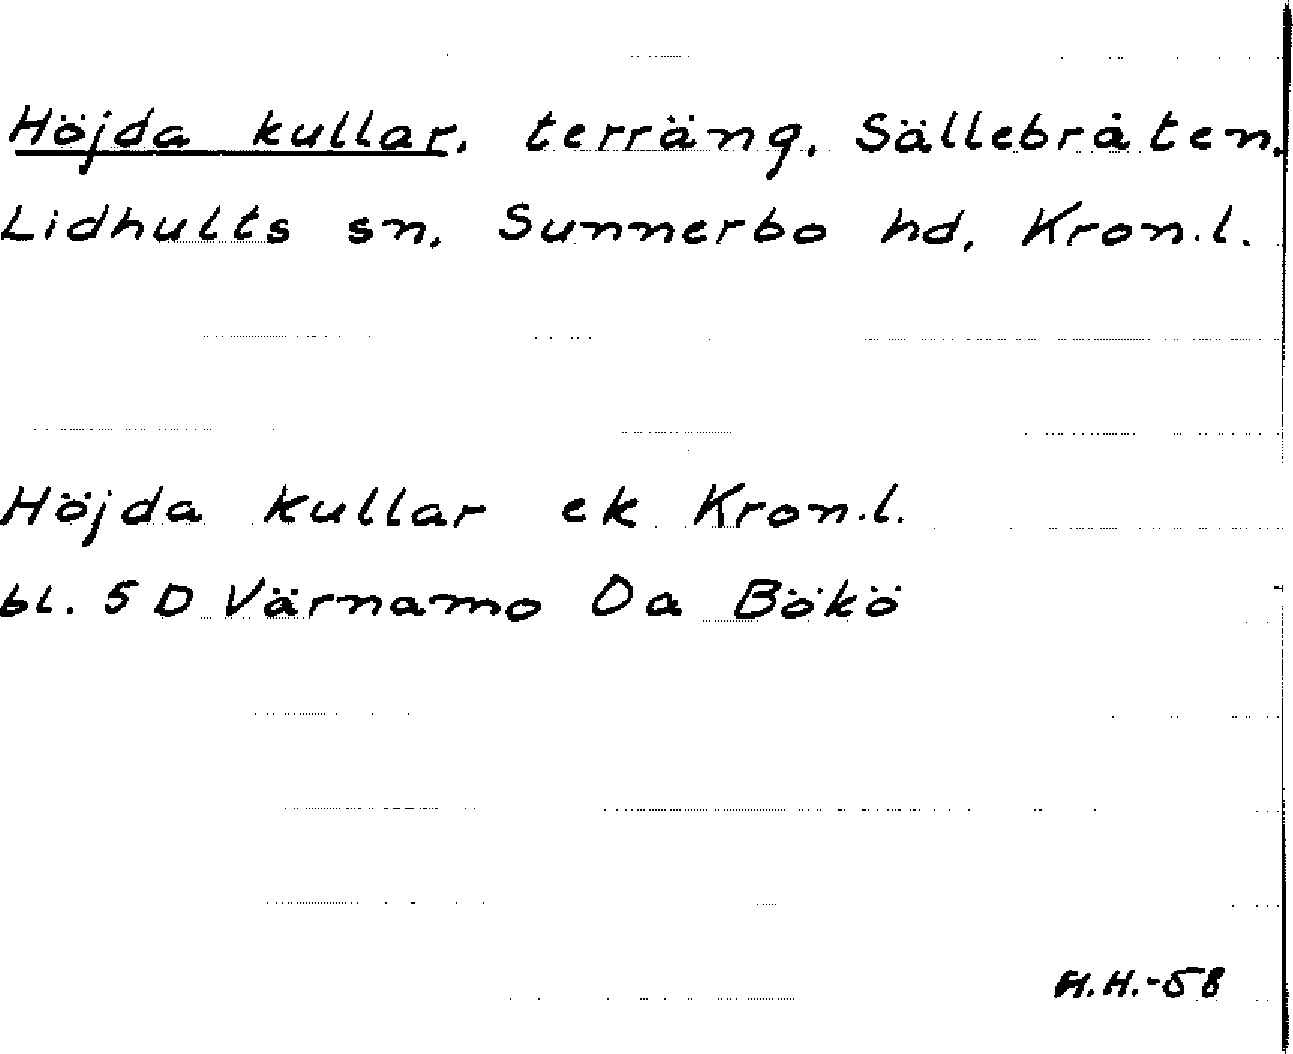 Höjda kullar, terräng, Sällebråten,
Lidhults sn, Sunnerbo hd, Kron.l.
Höjda kullar ek Kron.l.
bl. 5 D Värnamo 0a Bökö
H.H.-58